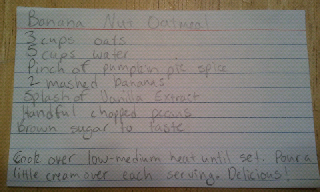 Banana Nut Oatmeal
3 cups oats
5 cups water
Pinch of pumpkin pie spice
2 mashed bananas
Splash of Vanilla Extract
Handful chopped pecans
Brown sugar to taste
Cook over low-medium heat until set. Pour a
little cream over each serving. Delicious!